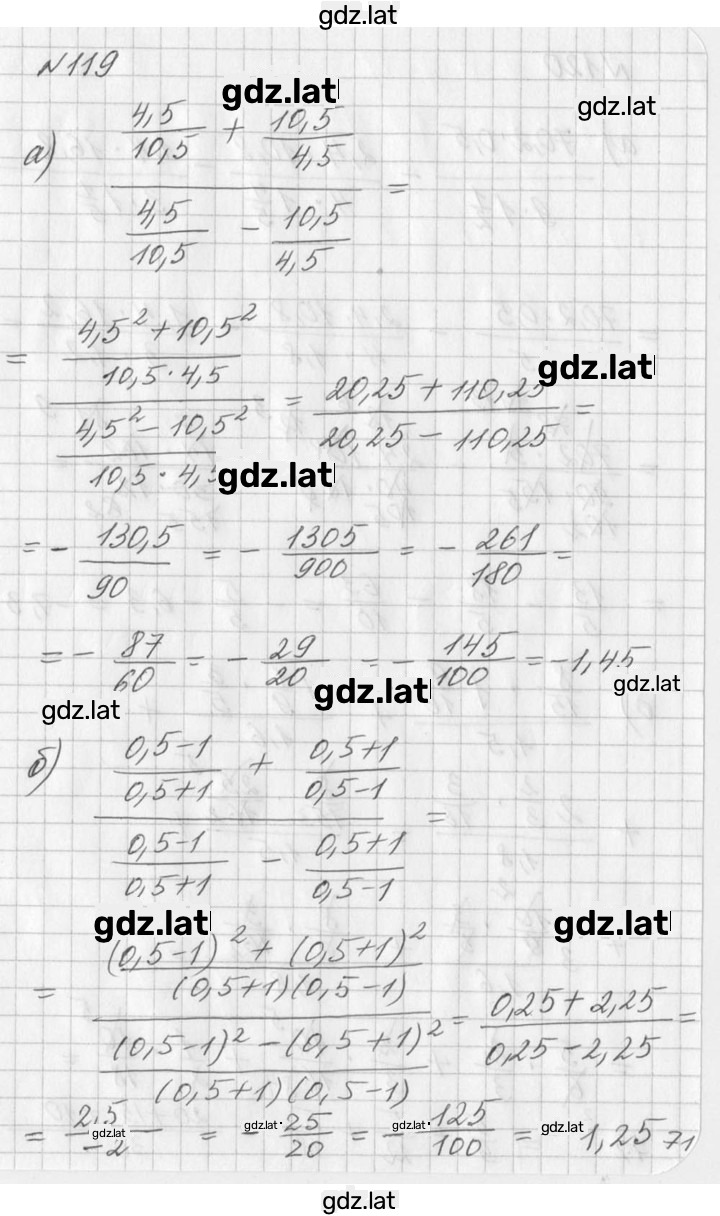 gdz.lat
№119
gdz.lat
gdz.lat
а) (4,5/10,5 + 10,5/4,5) / (4,5/10,5 - 10,5/4,5) =
= ((4,5² + 10,5²)/(10,5 · 4,5)) / ((4,5² - 10,5²)/(10,5 · 4,5)) = (20,25 + 110,25)/(20,25 - 110,25) =
gdz.lat
gdz.lat
= - 130,5/90 = - 1305/900 = - 261/180 =
= - 87/60 = - 29/20 = - 145/100 = -1,45
gdz.lat
gdz.lat
gdz.lat
б) ((0,5-1)/(0,5+1) + (0,5+1)/(0,5-1)) / ((0,5-1)/(0,5+1) - (0,5+1)/(0,5-1)) =
gdz.lat
gdz.lat
= (((0,5-1)² + (0,5+1)²)/((0,5+1)(0,5-1))) / (((0,5-1)² - (0,5+1)²)/((0,5+1)(0,5-1))) = (0,25 + 2,25)/(0,25 - 2,25) =
= 2,5/-2 = - 25/20 = - 125/100 = 1,25 71
gdz.lat
gdz.lat
gdz.lat
gdz.lat
gdz.lat